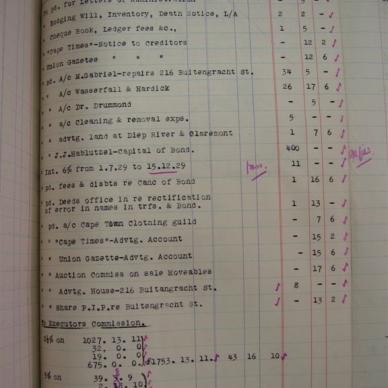 pd. for Letters of Administration
" Lodging Will, Inventory, Death Notice, L/A 2 2 -
" Cheque Book, Ledger fees &c., 1 5 -
" "Cape Times"-Notice to Creditors - 12 2
" Union Gazette " " " - 12 6
" pd. A/c M.Gabriel-repairs 216 Buitengracht St. 34 5 -
" " A/c Wasserfall & Hardick 26 17 6
" " A/c Dr. Drummond - 5 -
" " a/c Cleaning & removal exps. 5 - -
" " advtg. land at Diep River & Claremont 1 7 6
" " J.J.Hablutzel-Capital of Bond. 400 - -
" Int. 6% from 1.7.29 to 15.12.29 11 - -
" pd. fees & disbts re Canc of Bond 1 16 6
" pd. Deeds office in re rectification
of error in names in trfs. & Bond. 1 13 -
" pd. a/c Cape Town Clotning guild - 7 6
" " "Cape Times"-Advtg. Account - 15 2
" " Union Gazette-Advtg. Account - 15 6
" "Auction Commiss on sale Moveables - 17 6
" " Advtg. House-216 Buitangracht St. 8 - -
" "Share P.I.P.re Buitengracht St. - 13 2
Executors Commission.
2½% on 1027. 13. 11
32. 0. 0
19. 0. 0
675. 0. 0 £1753. 13. 11. 43 16 10
5% on 39. 3. 9